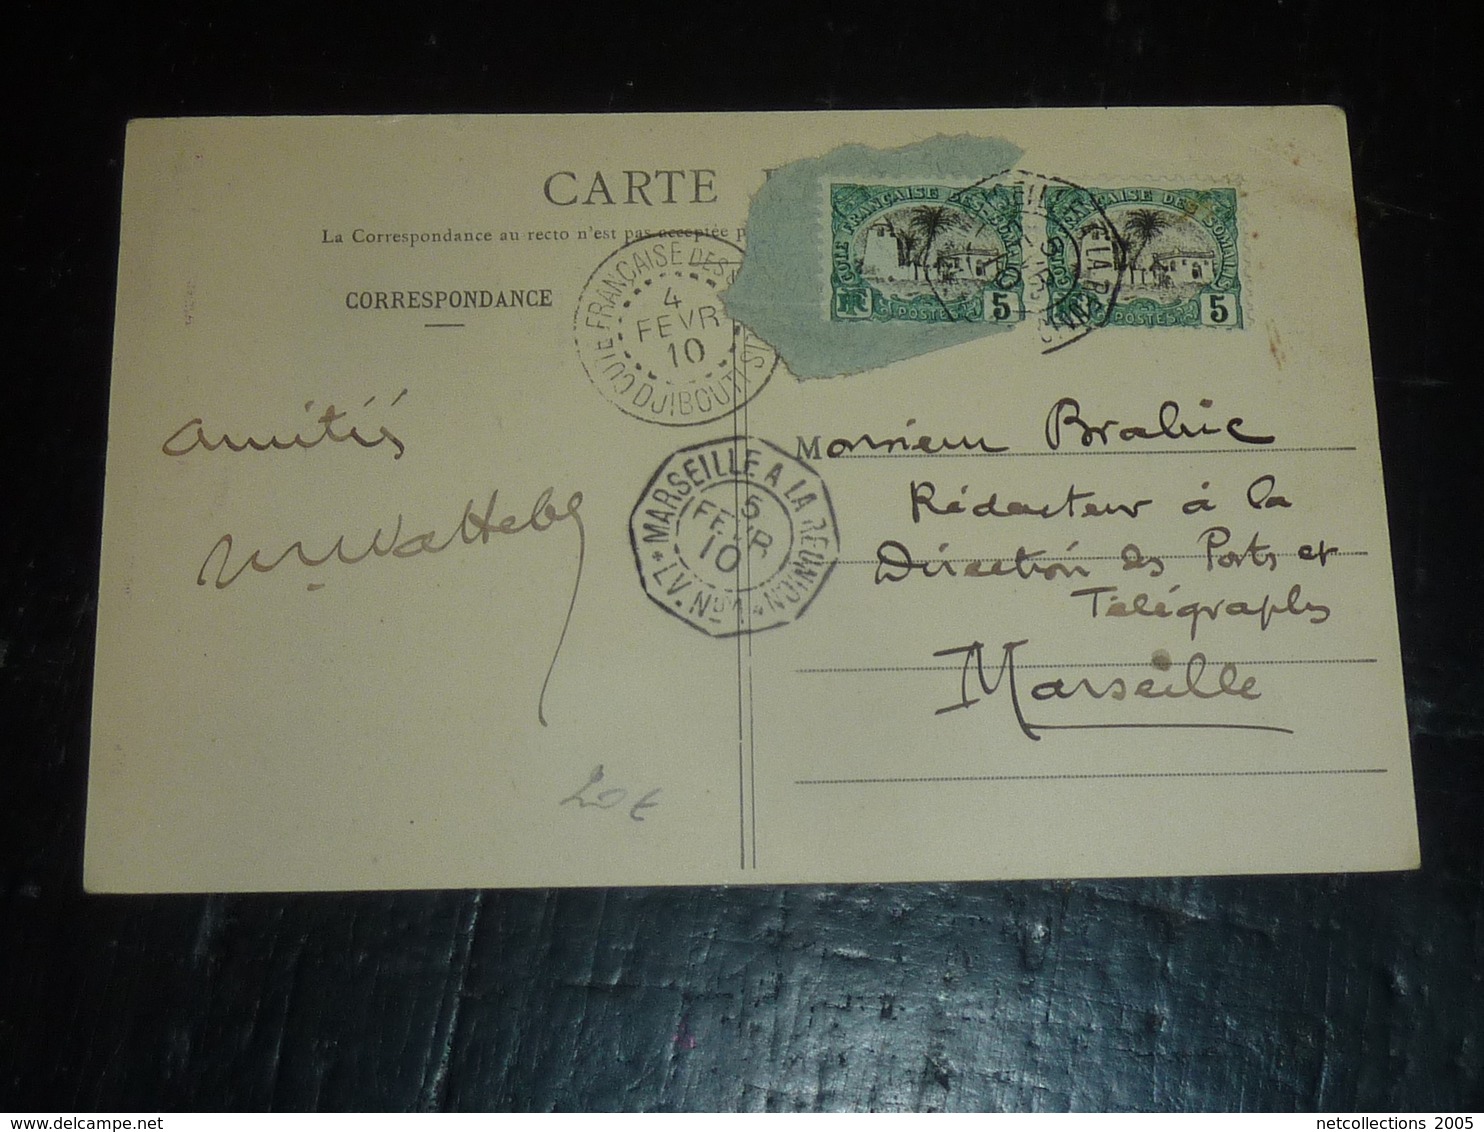 CARTE
La Correspondance au recto n'est pas acceptée p
CORRESPONDANCE
COTE FRANÇAISE DES
4
FEVR
10
DJIBOUTI
COTE FRANÇAISE DES SOMALIS
POSTES
5
COTE FRANÇAISE DES SOMALIS
POSTES
5
MARSEILLE A LA REUNION
5
FEVR
10
L.V. No 1
amitiés
Monsieur Brahic
Rédacteur à la
Direction des Postes et
Télégraphes
Marseille
20€
netcollections 2005